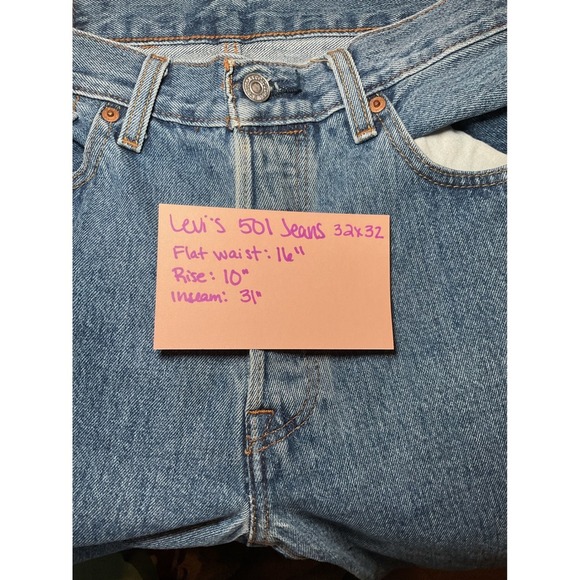 Levi's 501 Jeans 32x32
Flat waist: 16"
Rise: 10"
Inseam: 31"